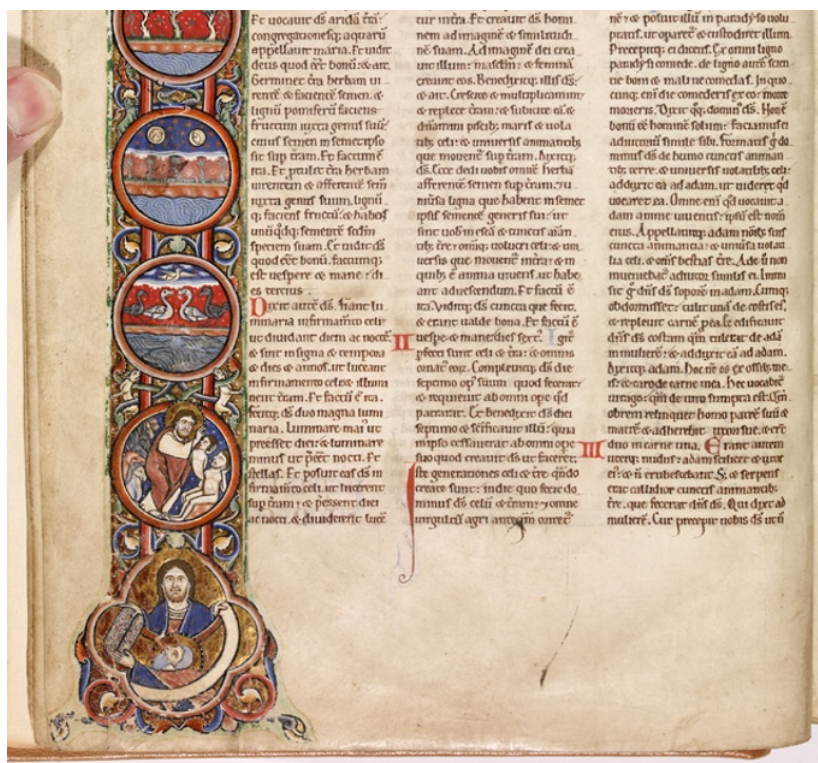 Et uocauit ds̄ aridā t̄rā:
congregationesq; aquarū
appellauit maria. Et uidit
deus quod eēt bonū: & ait.
Germinet t̄ra herbam ui
rentē & faciente semen. &
lignū pomiferū faciens
fructum iuxta genus suū:
cuius semen in semetipso
sit sup t̄ram. Et factum ē
ita. Et ptulit t̄ra herbam
uirentem & afferentē sem̄
iuxta genus suum. lignū
q; faciens fructū: & habēs
unū qdq; sementē scdm̄
speciem suam. Et uidit ds̄
quod eēt bonū. factumq;
est uespere & mane: di
es tercius.
Dixit autē ds̄. fiant lu
minaria in firmam̄to celi:
ut diuidant diem ac noctē:
& sint in signa & tempora
& dies & annos. ut luceant
in firmamento celi & illumi
nent t̄ram. Et factū ē ita.
fecitq; ds̄ duo magna lumi
naria. Luminare maiˀ ut
preesset diei: & luminare
minus ut p̄eēt nocti. Et
stellas. Et posuit eas ds̄ in
firmam̄to celi. ut lucerent
sup t̄ram: & p̄essent diei
ac nocti. & diuiderent lucē
tur in t̄ra. Et creauit ds̄ homi
nem ad imaginē & similitudi
nē suam. Ad imaginē dei crea
uit illum: masclm̄ & feminā
creauit eos. Benedixitq; illis ds̄:
& ait. Crescite & multiplicamini
& replete t̄ram: & subicite eā &
dn̄amini piscib; maris & uola
tilib; celi: & uniuersis animantib;
que mouent̄ sup t̄ram. Dixitq;
ds̄. Ecce dedi uobis omnē herbā
afferentē semen sup t̄ram. & u
niūsa ligna que habent in semet
ipsis sementē generis sui: ut
sint uob̄ in escā & cunctis anim̄an
tib; t̄re: omniq; uolucri celi: & uni
uersis que mouent̄ in t̄ra: & in
quib; ē anima uiuens. ut habe
ant ad uescendum. Et factū ē
ita. Viditq; ds̄ cuncta que fecit.
& erant ualde bona. Et factū ē
uespe & mane dies sext̄. Igr̄
II
pfecti sunt celi & t̄ra: & omnis
ornatˀ eoꝝ. Compleuitq; ds̄ die
septimo opˀ suum quod fecerat:
& requieuit ab omni ope qd̄
patrarat. Et benedixit ds̄ diei
septimo & sc̄ificauit illū: quia
in ipso cessauerat ab omni ope
suo quod creauit ds̄ ut faceret.
Iste generationes celi & t̄re qn̄do
create sunt: in die quo fecit do
minus ds̄ celū & t̄ram: & omne
uirgultū agri antequam oriret̄
nē: & posuit illū in paradyso uolu
ptatis. ut opareť & custodiret illum.
Precepitq; ei dicens. Ex omni ligno
paradysi comede. de ligno autē scien
tie boni & mali ne comedas. In quo
cunq; eni die comederis ex eo: morte
morieris. Dixit qq; dominˀ ds̄. Non ē
bonū eē hominē solum: faciamus ei
adiutoriū simile sibi. Formatis g̊ do
minus ds̄ de humo cunctis animan
tib; terre. & uniuersis uolatilib; celi:
adduxit ea ad adam. ut uideret qd̄
uocaret ea. Omne eni qd̄ uocauit a
dam anime uiuentis: ipsū est nom̄
eius. Appellauitq; adam nōib; suis
cuncta animantia: & uniūsa uolati
lia celi. & om̄s bestias t̄re. Ade ū non
inueniebat̄ adiutor similis ei. Inmi
sit g̊ dn̄s ds̄ soporē in adam. Cumq;
obdormisset: tulit unā de costis eiˀ.
& repleuit carnē p ea. & edificauit
dn̄s ds̄ costam quā tulerat de adā
in mulierē: & adduxit eā ad adam.
Dixitq; adam. hoc nc̄ os ex ossib; me
is: & caro de carne mea. hec uocabit̄
uirago: qm̄ de uiro sumpta est. Qm̄
obrem relinquet homo patrē suū &
matrē & adherebit uxori sue. & er̄t
duo in carne una. Erant autem
III
uterq; nudus: adam scilicet & uxor
eiˀ: & ñ erubescebant. S; & serpens
erat callidior cunctis animantib;
t̄re. que fecerat dn̄s ds̄. Qui dixit ad
mulierē. Cur precepit uobis ds̄ ut ñ